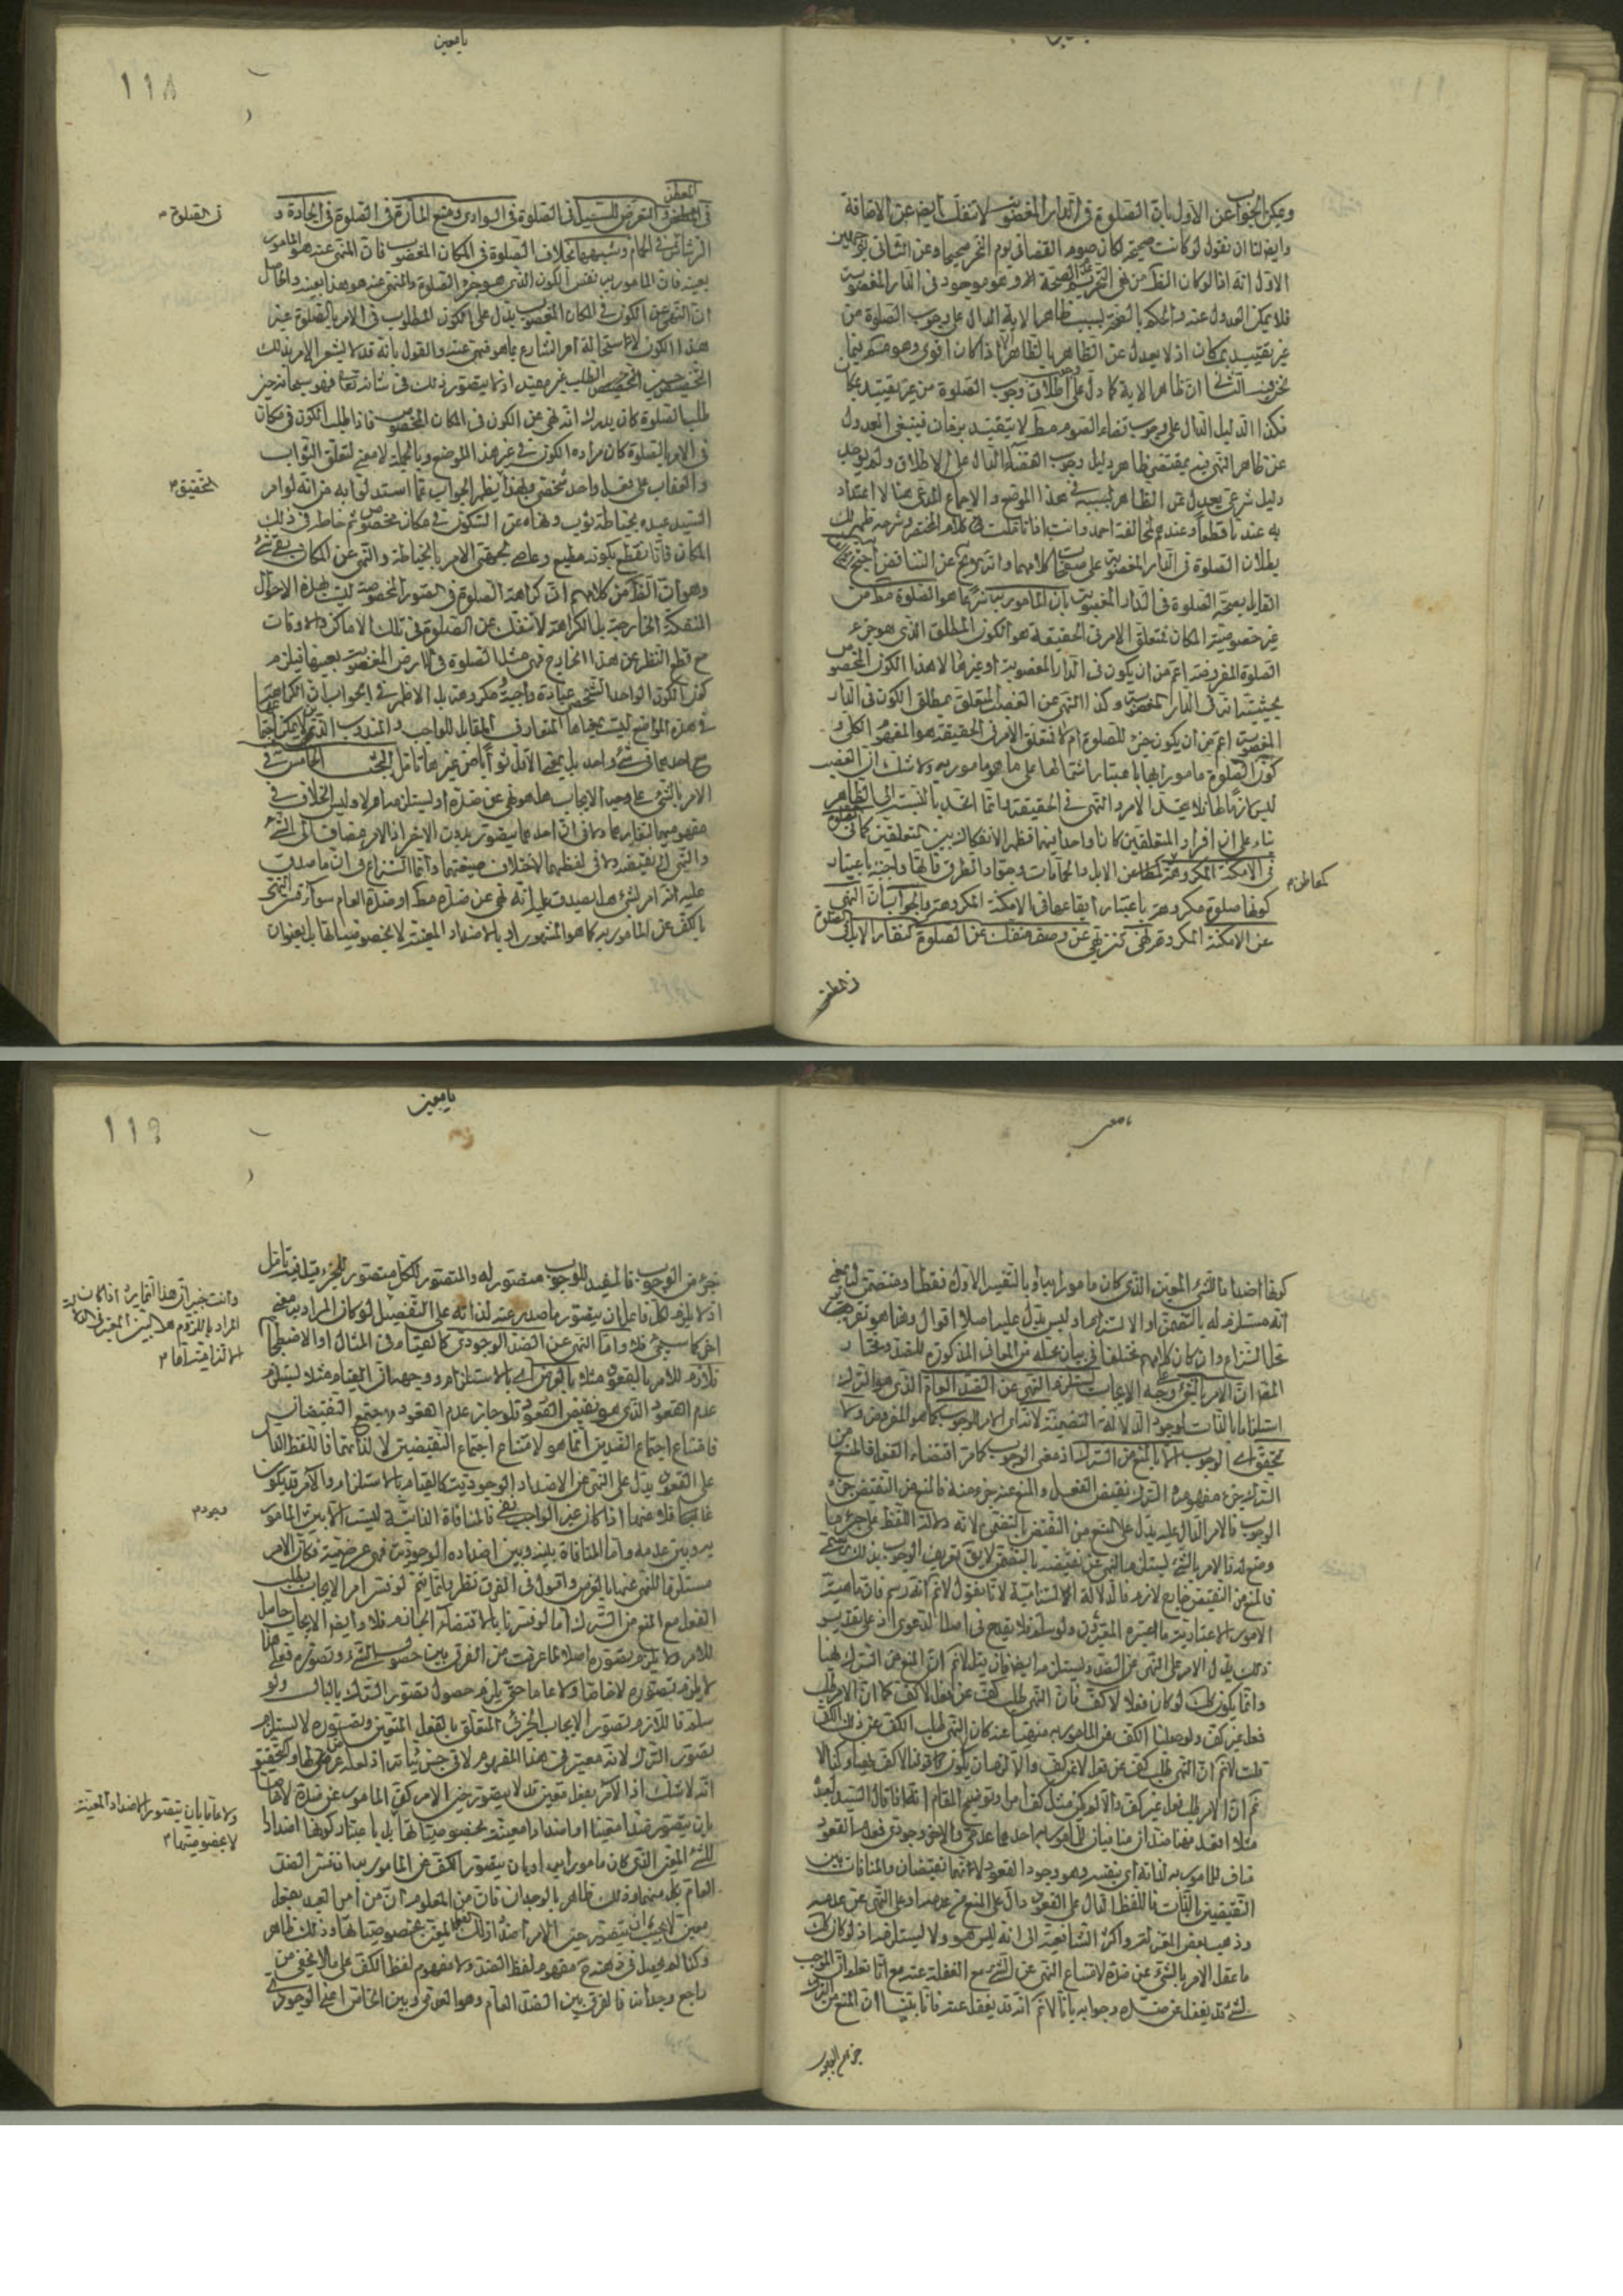 ويمكن الجواب عن الاول بان الصلوة فى الدار المغصوبة لا تنفك ايضا عن الاضافة
وايضا لنا ان نقول لو كانت صحيحة لكان صوم القضا فى يوم النحر صحيحا وعن الثانى بوجهين
الاول انه اذا لو كان الظ من نهى التحريم الصحة
فلا يمكن العدول عنه والحكم بالصحة بسبب ظاهر الاية الدال على وجوب الصلوة من
غير تقييد بمكان اذ لا يعدل عن الظاهر بالظاهر الا اذا كان اقوى وهو ممنوع فيما
نحن فيه الثانى ان ظاهر الاية كما دل على اطلاق وجوب الصلوة من غير تقييد بمكان
فكذا الدليل الدال على وجوب قضاء الصوم مط لا يتقيد بزمان فينبغى العدول
عن ظاهر النهى فيه بمقتضى ظاهر دليل وجوب القضاء الدال على الاطلاق ولم يوجد
دليل شرعى يعدل عن الظاهر بسببه فى هذا الموضع والاجماع المدعى هنا لا اعتداد
به عندنا قطعا وعندهم لمخالفة احمد وانت اذا تاملت فى كلام المختصر وشرحه ظهر لك
بطلان الصلوة فى الدار المغصوبة على
القايل بصحة الصلوة فى الدار المغصوبة بان المامور به
غير خصوصية المكان فمتعلق الامر فى الحقيقة هو الكون المطلق الذى هو جزء
الصلوة المفروضة اعم من ان يكون فى الدار المغصوبة او غيرها لا هذا الكون المخصوص
بحيثية انه فى الدار المغصوبة وكذا النهى عن الغصب المتعلق بمطلق الكون فى الدار
المغصوبة اعم من ان يكون جزء للصلوة ام لا فمتعلق الامر فى الحقيقة هو المفهوم الكلى و
كون الصلوة مامورا بها باعتبار اشتمالها على ما هو مامور به ولا شك ان الغصب
ليس لازما لها فلا يتحد الامر والنهى فى الحقيقة وانما اتحد بالنسبة الى الظاهر
بناء على ان افراد المتعلقين كانا واحدا منهما فظهر الانفكاك بين المتعلقين كما فى الصلوة
فى الامكنة المكروهة كمعاطن الابل والحمامات وجواد الطرق فانها واجبة باعتبار
كونها صلوة مكروهة باعتبار ايقاعها فى الامكنة المكروهة والجواب ان النهى
عن الامكنة المكروهة نهى تنزيهى عن وصف منفك عن الصلوة كنفار الابل فى الصلوة
كمعاطن م
١١٨
يا معين
فى المعطن والتعرض للسيل فى الصلوة فى الوادى ومنع المارة فى الصلوة فى الجادة و
الرشاش فى الحمام وشبهها بخلاف الصلوة فى المكان المغصوب فان المنهى عنه هو المامور
بعينه فان المامور به نفس الكون الذى هو جزء الصلوة والمنهى عنه هو هذا بعينه والحاصل
ان النهى عن الكون فى المكان المغصوب يدل على ان الكون المطلوب فى الامر بالصلوة غير
هذا الكون لاستحالة امر الشارع بما هو منهى عنه والقول بانه قد لا يشعر الامر بذلك
التخصيص حين الطلب غير مفيد اذ لا يتصور ذلك فى شانه تعالى فهو سبحانه حين
طلب الصلوة كان يدرك انه نهى عن الكون فى المكان المخصوص فاذا طلب الكون فى مكان
فى الامر بالصلوة كان مراده الكون فى غير هذا الموضع وبالجملة لا معنى لتعلق الثواب
والعقاب بفعل واحد شخصى وبهذا يظهر الجواب عما استدلوا به من انه لو امر
السيد عبده بخياطة ثوب ونهاه عن السكون فى مكان مخصوص ثم خاطه فى ذلك
المكان فانا نقطع بكونه مطيع وعاص لجهتى الامر بالخياطة والنهى عن المكان بقى شئ
وهو ان الظ من كلامهم ان كراهة الصلوة فى الصور المخصوصة ليست لهذه الاحوال
المنفكة الخارجة بل الكراهة لا تنفك عن الصلوة فى تلك الاماكن والاوقات
مع قطع النظر عن هذا الخارج فهى مثل الصلوة فى الارض المغصوبة بعينها فيلزم
كون الكون الواحد الشخصى عبادة واجبة ومكروهة بل الاظهر فى الجواب ان الكراهة
فى هذه المواضع ليست بمعناها المتعارف المقابل للواجب والمندوب الذى لا يمكن اجتماعها
مع احدهما فى شئ واحد بل بمعنى الاقل ثوابا من غيرها تامل البحث الخامس فى
الامر بالشئ على وجه الايجاب هل هو نهى عن ضده او يستلزمه ام لا وليس الخلاف فى
مفهوميهما لتغايرهما ولا فى ان احدهما يتصور بدون الاخر اذ الامر مضاف الى الشئ
والنهى الى نقيضه ولا فى لفظيهما لاختلاف صيغتيهما وانما النزاع فى ان ما صدق
عليه انه امر بشئ هل يصدق عليه انه نهى عن ضده مط او ضده العام سواء فسر النهى
بالكف عن المامور به كما هو المشهور او بالاضداد المعينة لا بخصوصياتها بل بعنوان
فى الصلوة م
التحقيق م
يا معين
كونها اضدادا للشئ المعين الذى كان مامورا به او بالتفسير الاول فقط او متضمن له بمعنى
انه مستلزم له بالتضمن او الالتزام او ليس يدل عليه اصلا اقوال وهذا هو تقرير
محل النزاع وان كان كلامهم مختلفا فى بيان محله من المعانى المذكورة للضد ومختار
المص ان الامر بالشئ وجه الايجاب يستلزم النهى عن الضد العام الذى هو الترك
استلزاما بالذات لوجود الدلالة التضمنية لان الامر للوجوب كما هو المفروض ولا
تحقق له اى الوجوب الا بالمنع من الترك اذ معنى الوجوب كما مر اقتضاء الفعل والمنع من
الترك جزء مفهومه الترك نقيض الفعل والمنع عنه جزء منه فالمنع من النقيض جزء
الوجوب فالامر الدال عليه يدل على المنع من النقيض بالتضمن لانه دلالة اللفظ على جزء ما
وضع له فالامر بالشئ يستلزم النهى عن نقيضه بالتضمن لا يق تعريف الوجوب بذلك رسمى
فالمنع من النقيض خارج لازم فالدلالة التزامية لانا نقول لانم انه رسم فان ماهية
الامور الاعتبارية ما اعتبره المعتبرون ولو سلم فلا يقدح فى اصل الدعوى اذ على تقدير
ذلك يدل الامر على النهى عن الضد ويستلزمه ايضا فان قيل لانم ان المنع من الترك نهيا
وانما يكون كذلك لو كان فعلا لا كف فان النهى طلب كف عن فعل لا كف كما ان الامر طلب
فعل غير كف ولو صلنا الكف عن المامور به منهيا عنه كان النهى طلب الكف عن ذلك الكف
قلت لانم ان النهى طلب كف عن فعل غير كف والا لزم ان يكون لا تكف نهيا وكذا لا
نم ان الامر طلب فعل غير كف والا لم يكن مثل كف امرا وتوضيح المقام انه اذا قال السيد لعبده
مثلا اقعد فهنا ضدان منافيان للمامور به احدهما عدمى والاخر وجودى فعدم القعود
مناف للمامور به لذاته اى بنفسه وهو وجود القعود لانهما نقيضان والمنافات بين
النقيضين بالذات فاللفظ الدال على القعود دال على المنع من عدمه او على النهى عن عدمه
وذهب بعض المعتزلة واكثر الشافعية الى انه ليس هو ولا يستلزمه اذ لو كان كذلك
ما عقل الامر بالشئ عن ضده لامتناع النهى عن الشئ مع الغفلة عنه مع انا نعلم ان الموجب
لشئ قد يغفل عن ضده وجوابه بانا لانم انه قد يغفل عنه فانا بينا ان المنع من الترك
١١٩
يا معين
جزء من الوجوب فالمفيد للوجوب متصور له والمتصور للكل متصور للجزء قيل فيه تامل
اذ لا يلزم لكل فاعل ان يتصور ما صدر عنه لذاته على التفصيل لو كان المراد به معنى
اخر كما سيجئ فلا واما النهى عن الضد الوجودى كالقيام فى المثال او الاضطجاع
فلازم للامر بالقعود مثلا بالعرض اى بالاستلزام ووجهه ان القيام مثلا يستلزم
عدم القعود الذى هو نقيض القعود فلو جاز عدم القعود لاجتمع النقيضان
فامتناع اجتماع الضدين انما هو لامتناع اجتماع النقيضين لا لذاتهما فاللفظ الدال
على القعود يدل على النهى عن الاضداد الوجودية كالقيام بالاستلزام والآمر قد يكون
غافلا عنها اذا كان غير الواجب تعالى فالمنافاة الذاتية ليست الا بين المامور
به وبين عدمه واما المنافاة بينه وبين اضداده الوجودية فهى عرضية فكان الامر
مستلزما للنهى عنها بالعرض واقول فى الفرق نظر فانما يتم لو فسر امر الايجاب بطلب
الفعل مع المنع من الترك اما لو فسرناه بالاقتضاء الجازم فلا وايضا الايجاب حاصل
للامر ولا يلزم تصوره اصلا لما عرفت من الفرق بين حصول الشئ وتصوره فعلى هذا
لا يلزم تصوره لا خاصا ولا عاما حتى يلزم حصول تصور الترك بالبال ولو
سلم فاللازم تصور الايجاب الجزئى المتعلق بالفعل المعين وتصوره لا يستلزم
تصور الترك لانه معتبر فى هذا المفهوم لا فى جزئياته اذ لعله عرضى لها والتحقيق
انه لا شك ان الآمر بفعل معين قد لا يتصور حين الامر كف المامور عن ضده لا خاصا
بان يتصور ضدا معينا او اضدادا معينة بخصوصياتها بل باعتبار كونها اضدادا
للشئ المعين الذى كان مامورا به او بان يتصور الكف عن المامور به ان فسر الضد
العام بكل منهما وذلك ظاهر بالوجدان فان من المعلوم ان من امر العبد بفعل
معين لا يجب ان يتصور حين الامر اضداد ذلك الفعل المعين بخصوصياتها وذلك ظاهر
وكذا لم يحصل فى ذهنه مفهوم لفظ الضد ولا مفهوم لفظ الكف على ما لا يخفى من
راجع وجدانه فالفرق بين الضد العام وهو العدمى وبين الخاص اعنى الوجودى
المراد باللزوم هو البين
موجود م
ولا عاما بان يتصور الاضداد المعينة
لا بخصوصيتها م